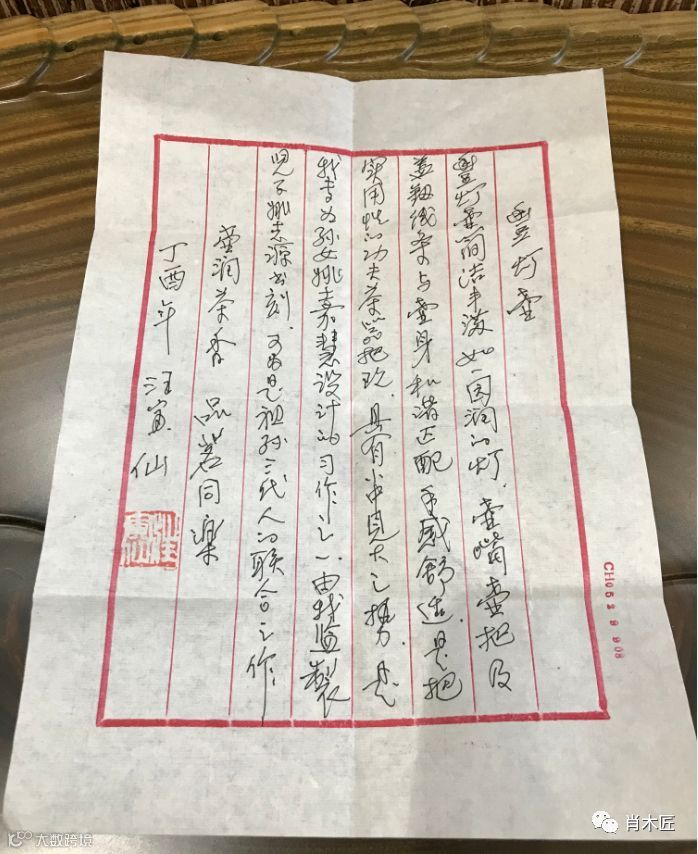 豐灯壶
豐灯壶简洁丰满如一园润的灯.壶嘴壶把及
盖钮线条与壶身和谐匹配手感舒适.是把
实用性的功夫茶器把玩.具有小中見大之势.是
我专为孙女姚嘉慧设计的习作之一.由我监製
児子姚志源書刻.可为是祖孙三代人的联合之作
壶润茶香 品茗同楽
丁酉年 汪寅仙
CH0529908
大数跨境
肖木匠